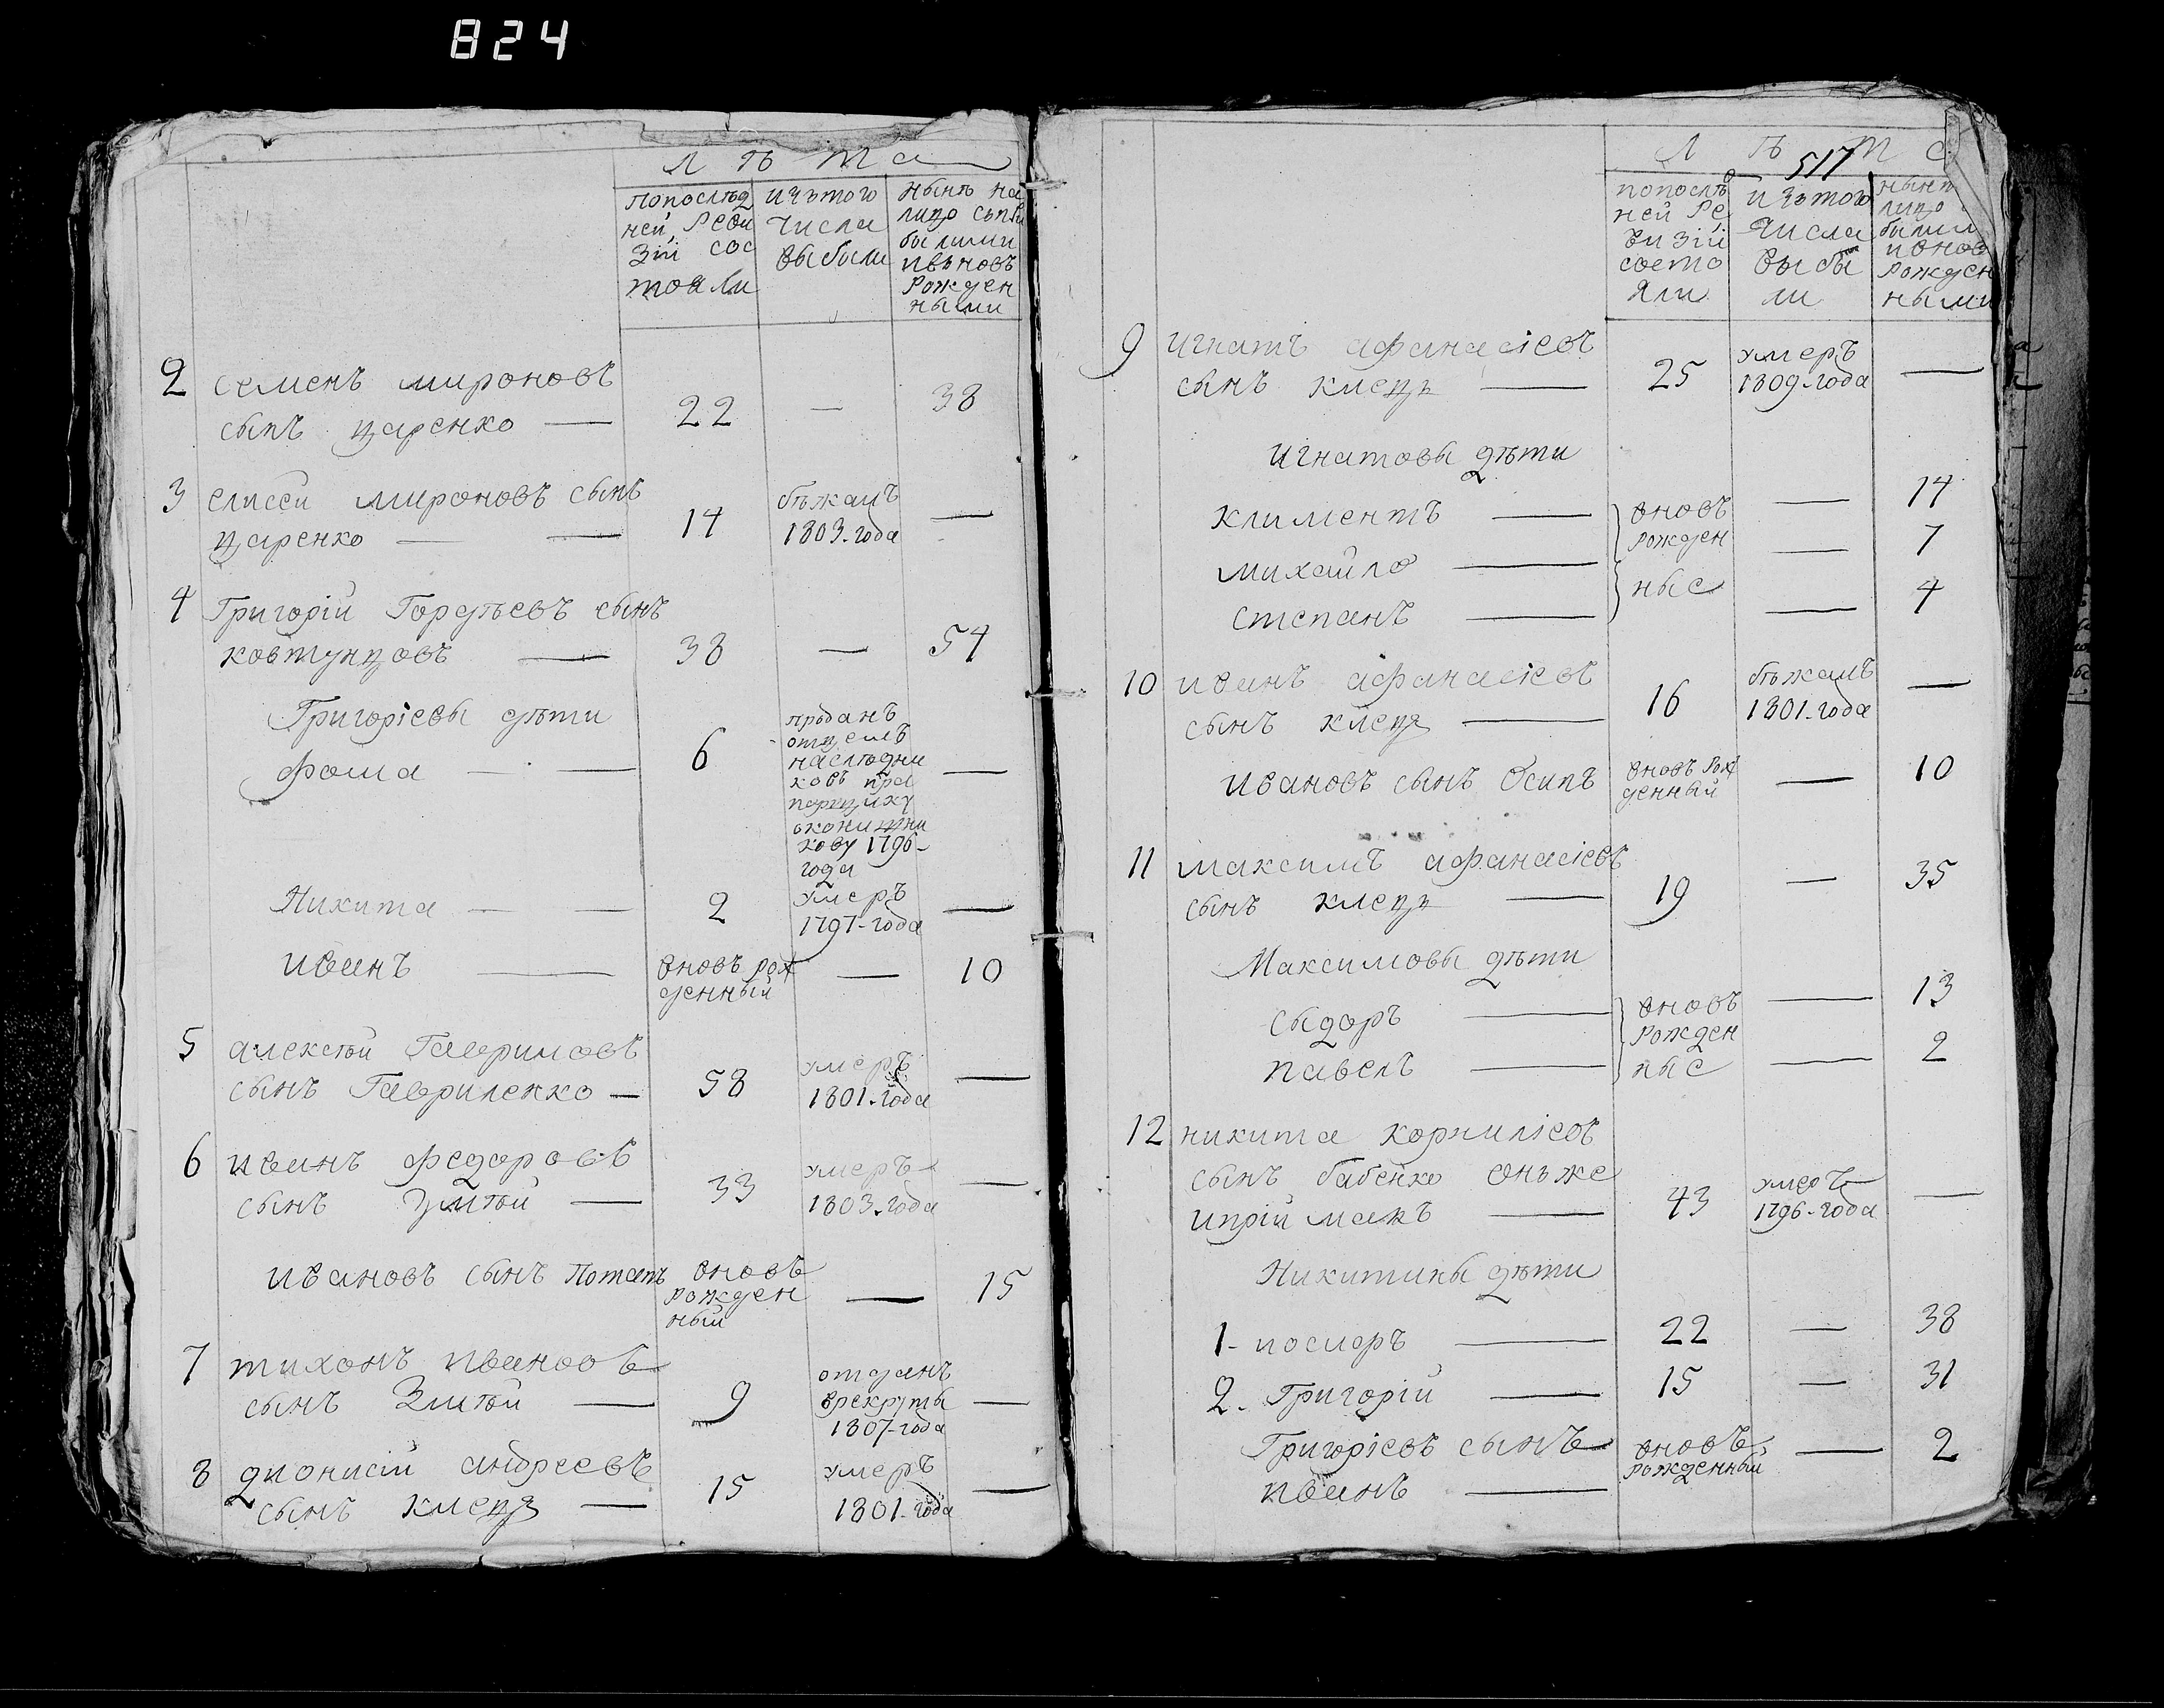 824
Л ѣ т а
попослѣд
ней, Реви
зіи сос
тояли
изтого
Числа
выбыли
Нынѣ на
лицо съпри
былими
ивъновь
Рожден
ными
2 Семенъ мироновъ
сынъ царенко — 22 — 38
3 елисей мироновъ сынъ
царенко — — 14 бѣжалъ
1803-года —
4 Григорій Гордѣевъ сынъ
ковтунцовъ — 38 — 54
Григоріевы дѣти
фома — — 6 —
проданъ
отцемъ
наслѣдни
ковъ пра
порщику
1796-
года
Никита — — 2 умеръ
1797-года —
иванъ — вновь рож
денный — 10
5 алексѣй Гавриловъ
сынъ Гавриленко — 58 умеръ
1801-года —
6 иванъ федоровъ
сынъ Змѣй — 33 умеръ
1803-года —
ивановъ сынъ Потапъ вновь
рожден
ный — 15
7 тихонъ ивановъ
сынъ Змѣй — 9 отданъ
врекруты
1807-года —
8 дионисій андреевъ
сынъ клеця — 15 умеръ
1801-года —
517
Л ѣ т а
попослѣд
ней Ре
визій
состо
яли
изтого
Числа
выбы
ли
нынѣ
лицо
былими
ивнов
Рожден
ными
9 игнатъ афанасіевъ
сынъ клеця — 25 умеръ
1809-года —
игнатовы дѣти
климентъ — вновь — 14
рожден
михайло — — 7
ные
степанъ — — 4
10 иванъ афанасіевъ
сынъ клеця — 16 бѣжалъ
1801-года —
ивановъ сынъ Осипъ вновь Рож
денный — 10
11 максимъ афанасіевъ
сынъ клеця — 19 — 35
Максимовы дѣти
Сыдоръ — вновь — 13
рожден
павелъ — ные — 2
12 никита корниліевъ
сынъ бабенко онъже
ипріймакъ — 43 умеръ
1796-года —
Никитины дѣти
1- — 22 — 38
2. Григорій — 15 — 31
Григоріевъ сынъ вновь
рожденный — 2
иванъ —